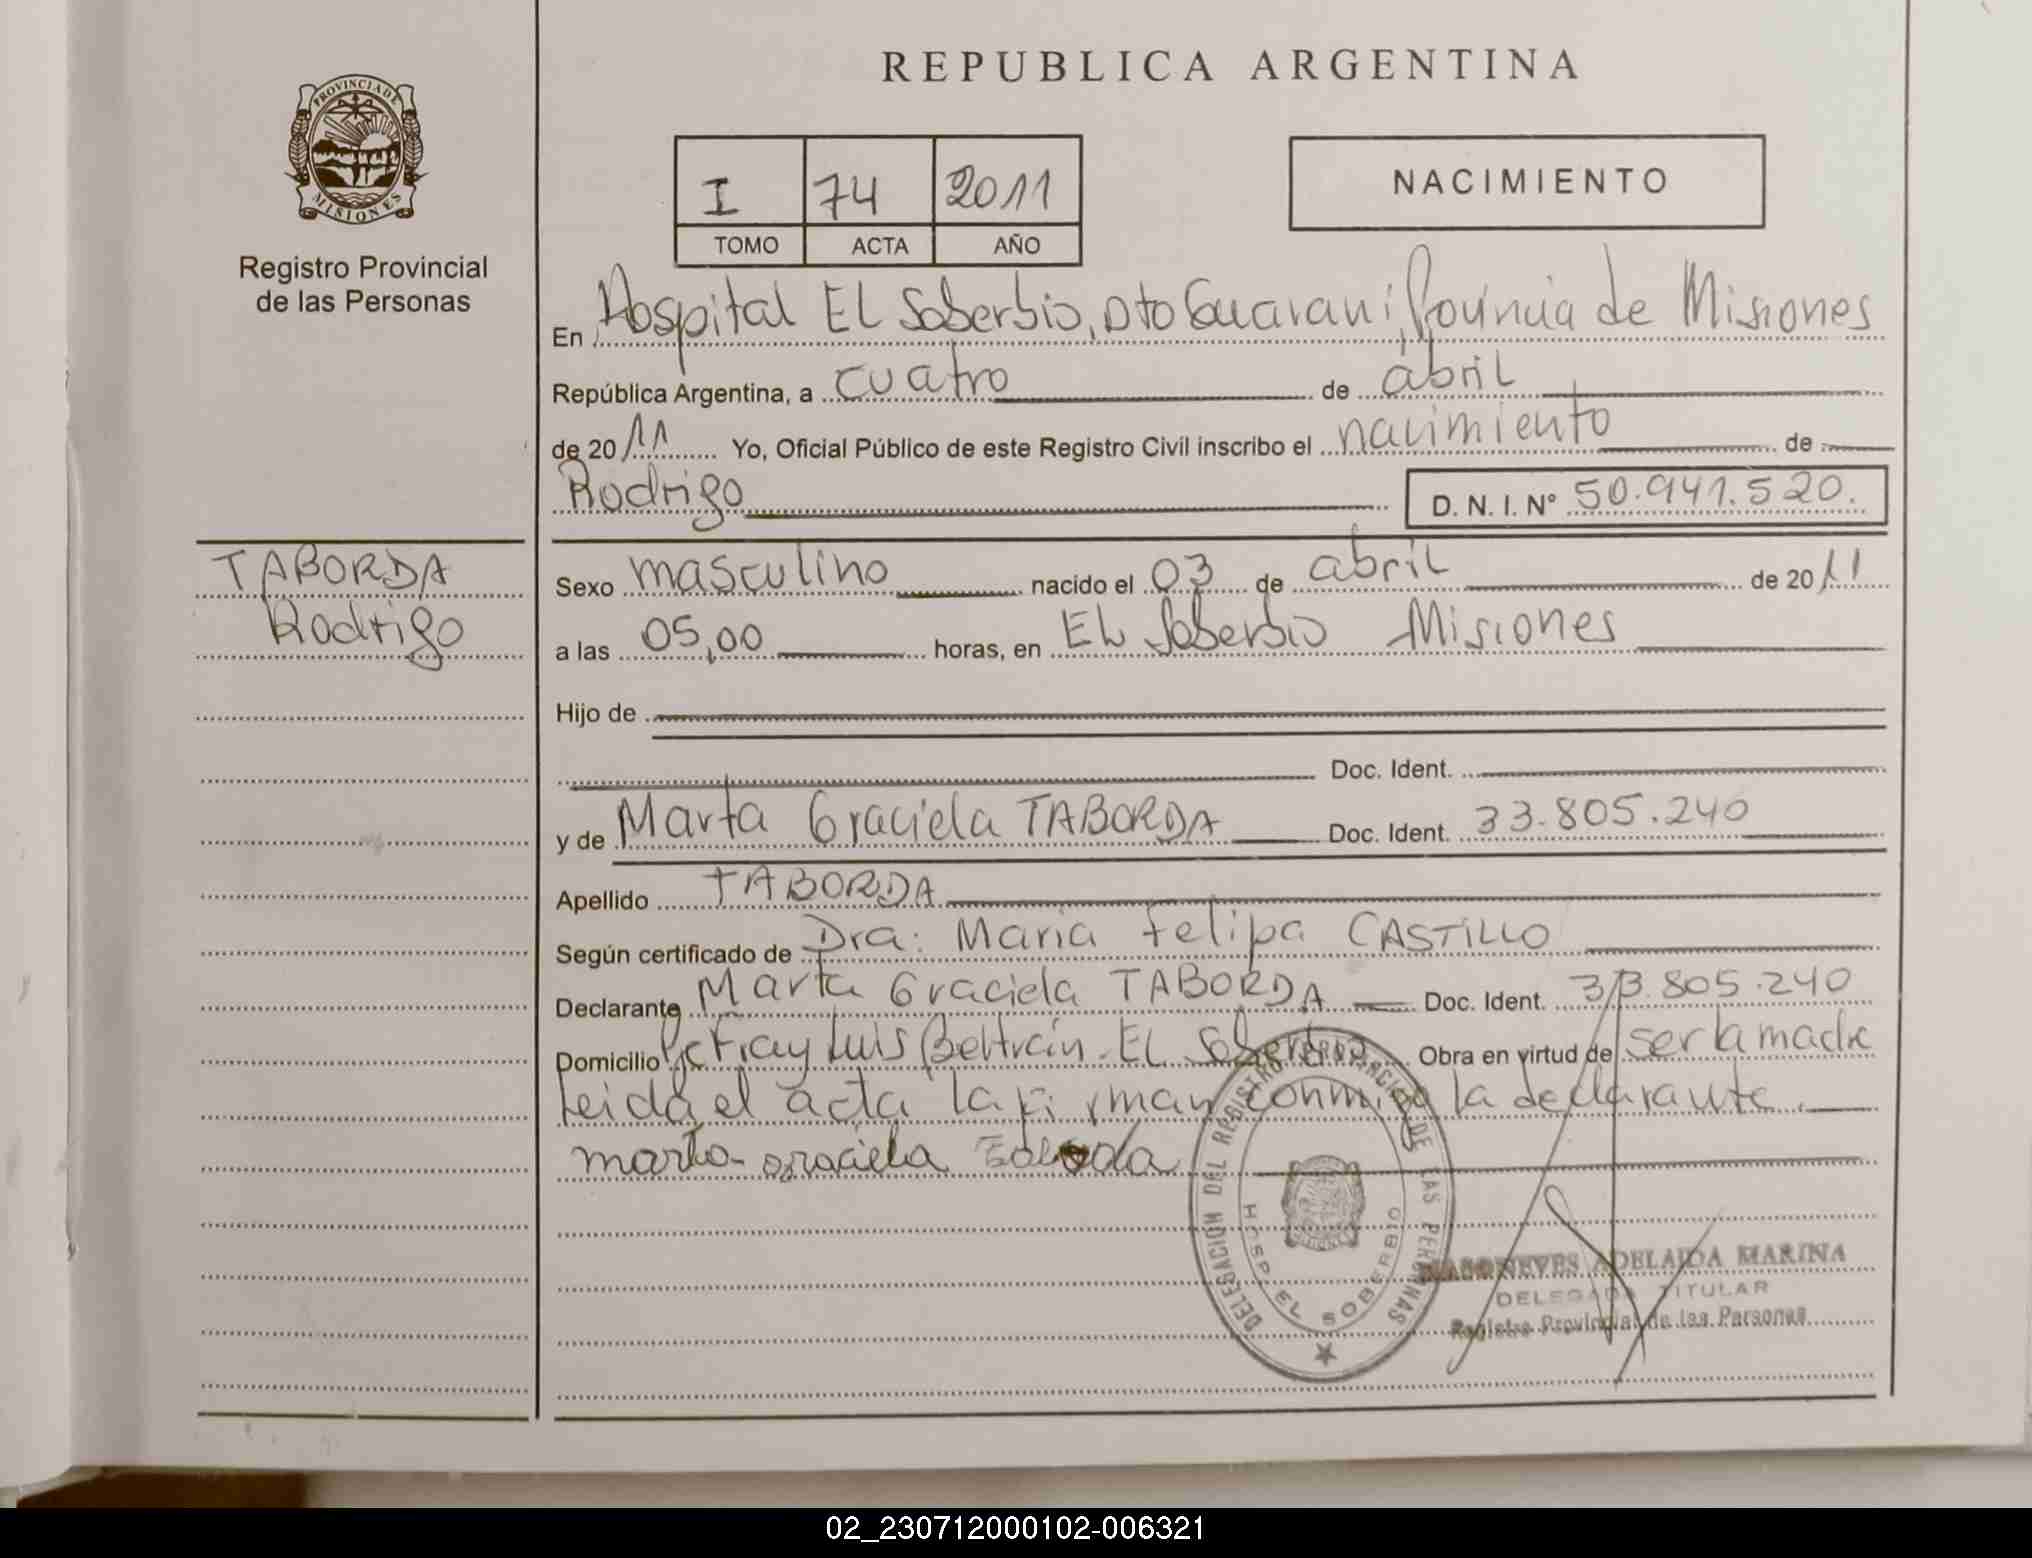 REPUBLICA ARGENTINA
PROVINCIA DE
MISIONES
Registro Provincial
de las Personas
I 74 2011
TOMO ACTA AÑO
NACIMIENTO
En Hospital El Soberbio, Dto Guarani, Provincia de Misiones
República Argentina, a cuatro de abril
de 2011 Yo, Oficial Público de este Registro Civil inscribo el nacimiento de
Rodrigo D. N. I. Nº 50.941.520.
TABORDA
Rodrigo
Sexo masculino nacido el 03 de abril de 2011
a las 05,00 horas, en El Soberbio Misiones
Hijo de
Doc. Ident.
y de Marta Graciela TABORDA Doc. Ident. 33.805.240
Apellido TABORDA
Según certificado de Dra: Maria Felipa CASTILLO
Declarante Marta Graciela TABORDA Doc. Ident. 33.805.240
Domicilio Fray Luis Beltrán. El Soberbio Obra en virtud de ser la madre
Leida el acta la firman conmigo la declarante.
marta graciela
DELEGACIÓN DEL REGISTRO PROVINCIAL DE LAS PERSONAS
HOSP. EL SOBERBIO
ADELAIDA MARINA
DELEGADA TITULAR
Registro Provincial de las Personas
02_230712000102-006321